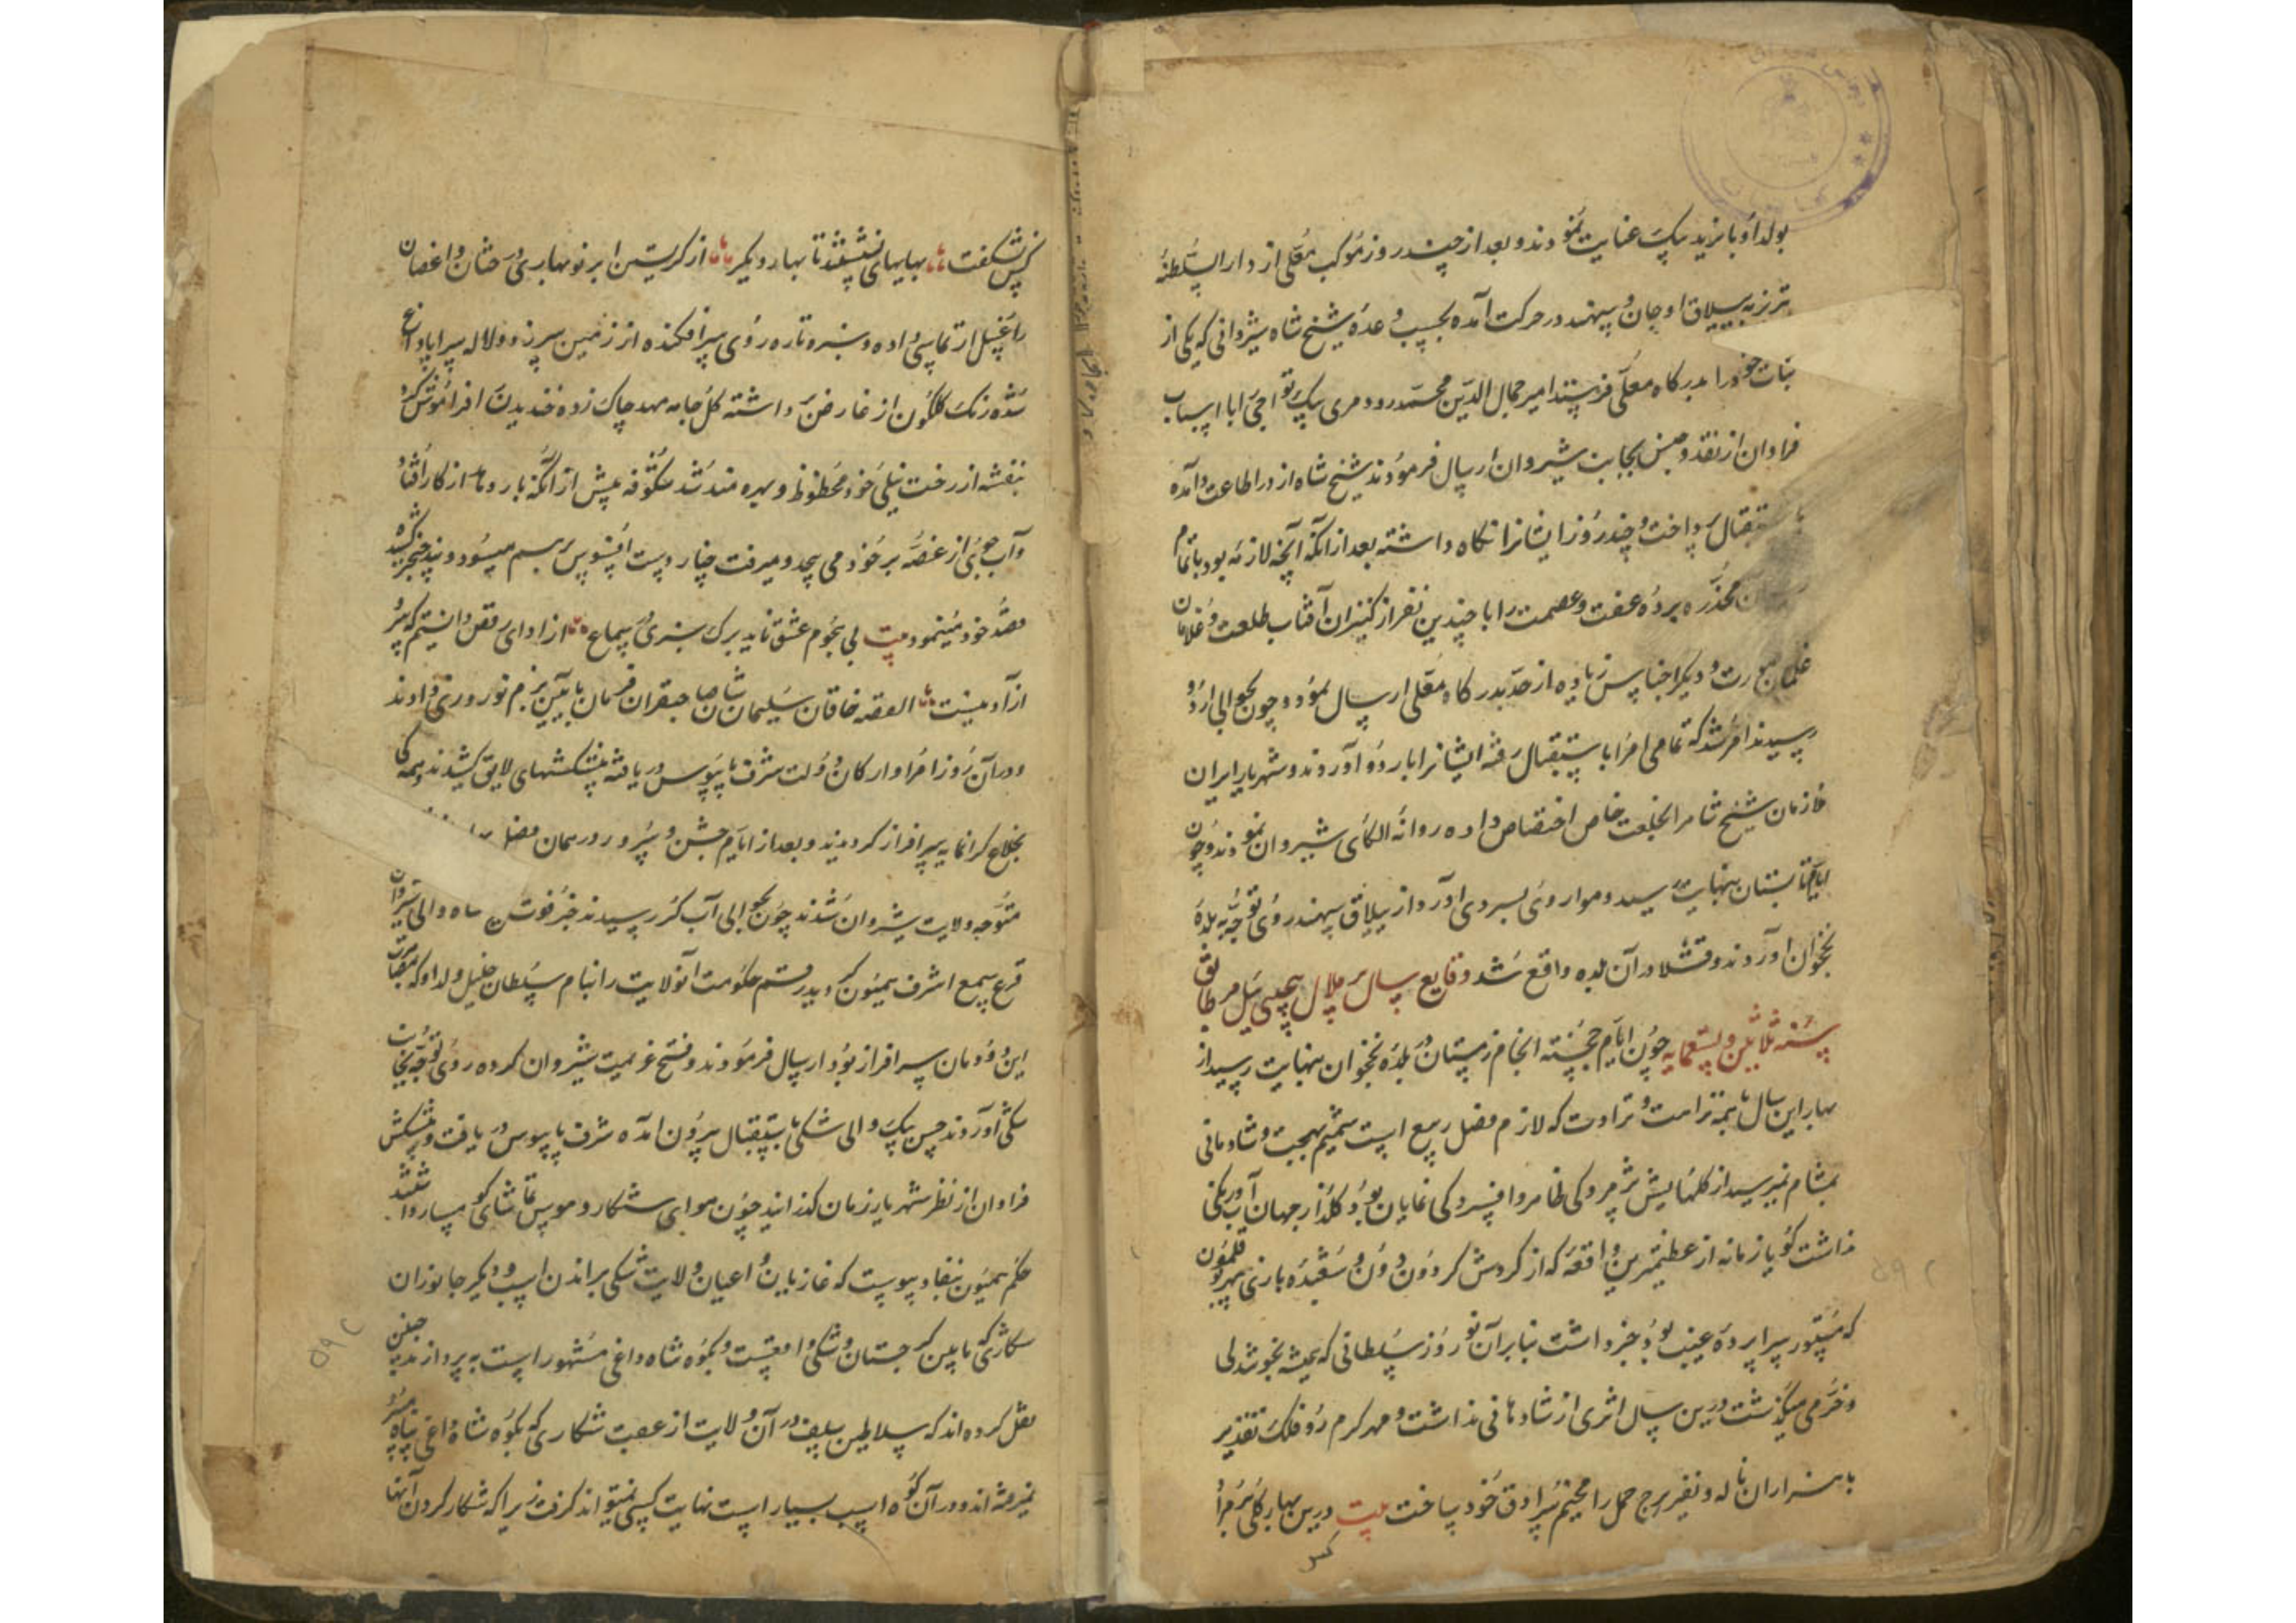 بولد او بایزید بیک عنایت نمودند و بعد از چند روز موکب معلی از دار السلطنه
تبریز به ییلاق اوجان و سهند در حرکت آمده بحسب وعده شیخ شاه شیروانی که یکی از
بنات خود را بدرکاه معلی فرستد امیر جمال الدین محمد و دومری بیک تواچی را با اسباب
فراوان از نقد و جنس بجانب شیروان ارسال فرمودند شیخ شاه از در اطاعت در آمده
باستقبال پرداخت و چند روز ایشانرا نکاه داشته بعد از آنکه آنچه لازمه بود باتمام
مخدره پرده عفت و عصمت را با چندین نفر از کنیزان آفتاب طلعت و غلامان
غلمان صورت و دیکر اجناس زیاده از حد بدرکاه معلی ارسال نمود و چون بحوالی اردو
رسیدند امر شد که تمامی امرا باستقبال رفته ایشانرا باردو آوردند و شهریار ایران
ملازمان شیخ شاه را بخلعت خاص اختصاص داده روانه الکای شیروان نمودند و چون
ایام تابستان بنهایت رسید و هوا روی بسردی آورد از ییلاق سهند روی توجه به بلده
نخجوان آوردند و قشلاق در آن بلده واقع شد وقایع سال پر ملال پیچی ئیل مطابق
سنه ثلاثین و تسعمایه چون ایام خجسته انجام زمستان در بلده نخجوان بنهایت رسید از
بهار این سال با همه نزاهت و تراوت که لازم فصل ربیع است شمیم بهجت و شادمانی
بمشام نمیرسید از کلهایش پژمردکی ظاهر و افسردکی نمایان بود کلزار جهان آب و رنکی
نداشت کویا زمانه از عظیمترین واقعه که از کردش کردون دون و شعبده بازی سپهر بوقلمون
که مستور سراپرده غیب بود خبر داشت بنابر آن نوروز سلطانی که همیشه بخوشدلی
و خرمی میکذشت درین سال اثری از شادمانی نداشت و مهر کرم رو فلک تقدیر
با هزاران ناله و نفیر برج حمل را مخیم سرادق خود ساخت بیت درین بهار کلی
کس
کس نشکفت بهاریهای نشستند تا بهار دیکر از کریستن ابر نو بهاری درختان و اغصان
را غسل ارتماسی داده و سبزه تازه روی سر افکنده از زمین سر زد و لاله سراپا داغ
شده رنک کلکون از عارض داشته کل جامه مهد چاک زده خندیدن افراموش کرد
بنفشه از رخت نیلی خود محظوظ و بهره مند شد شکوفه پیش از آنکه بار دهد از کار افتاد
و آب جوی از غصه بر خود می پیچد و میرفت چنار دست افسوس بر هم میسود و بید خنجر کشیده
قصد خود مینمود بیت بی هجوم عشق ناید برک سبزی در سماع از ادای رقص دانستم که پر
از آدمیست القصه خاقان سلیمان شان صاحبقران فرمان بآیین بزم نوروزی دادند
و در آن روز امرا و ارکان دولت شرف پابوس دریافته پیشکشهای لایق کشیدند و همه کی
بخلاع کرانمایه سرافراز کردیدند و بعد از ایام جشن و سرور در همان فصل
متوجه ولایت شیروان شدند چون بحوالی آب کر رسیدند خبر فوت شیخ شاه والی شیروان
قرع سمع اشرف همیون کردید رقم حکومت آنولایت را بنام سلطان خلیل ولد او که بمصاهرت
این دودمان سرافراز بود ارسال فرمودند و فسخ عزیمت شیروان کرده روی توجه بجانب
شکی آوردند حسن بیک والی شکی باستقبال بیرون آمده شرف پابوس دریافت و پیشکش
فراوان از نظر شهریار زمان کذرانید چون هوای شکار و هوس تماشای کوهسار داشتند
حکم همیون بنفاد پیوست که غازیان و اعیان ولایت شکی براندن اسب و دیکر جانوران
شکاری که مابین کرجستان و شکی واقعست و بکوه شاه داغی مشهور است به پردازند چنین
نقل کرده اند که سلاطین سلف در آن ولایت از عقب شکاری که بکوه شاه داغی پناه میبرد
نمیرفته اند و در آن کوه اسب بسیار است نهایت کسی نمیتواند کرفت زیرا که شکار کردن آنها
۵۹۲
۵۹۲